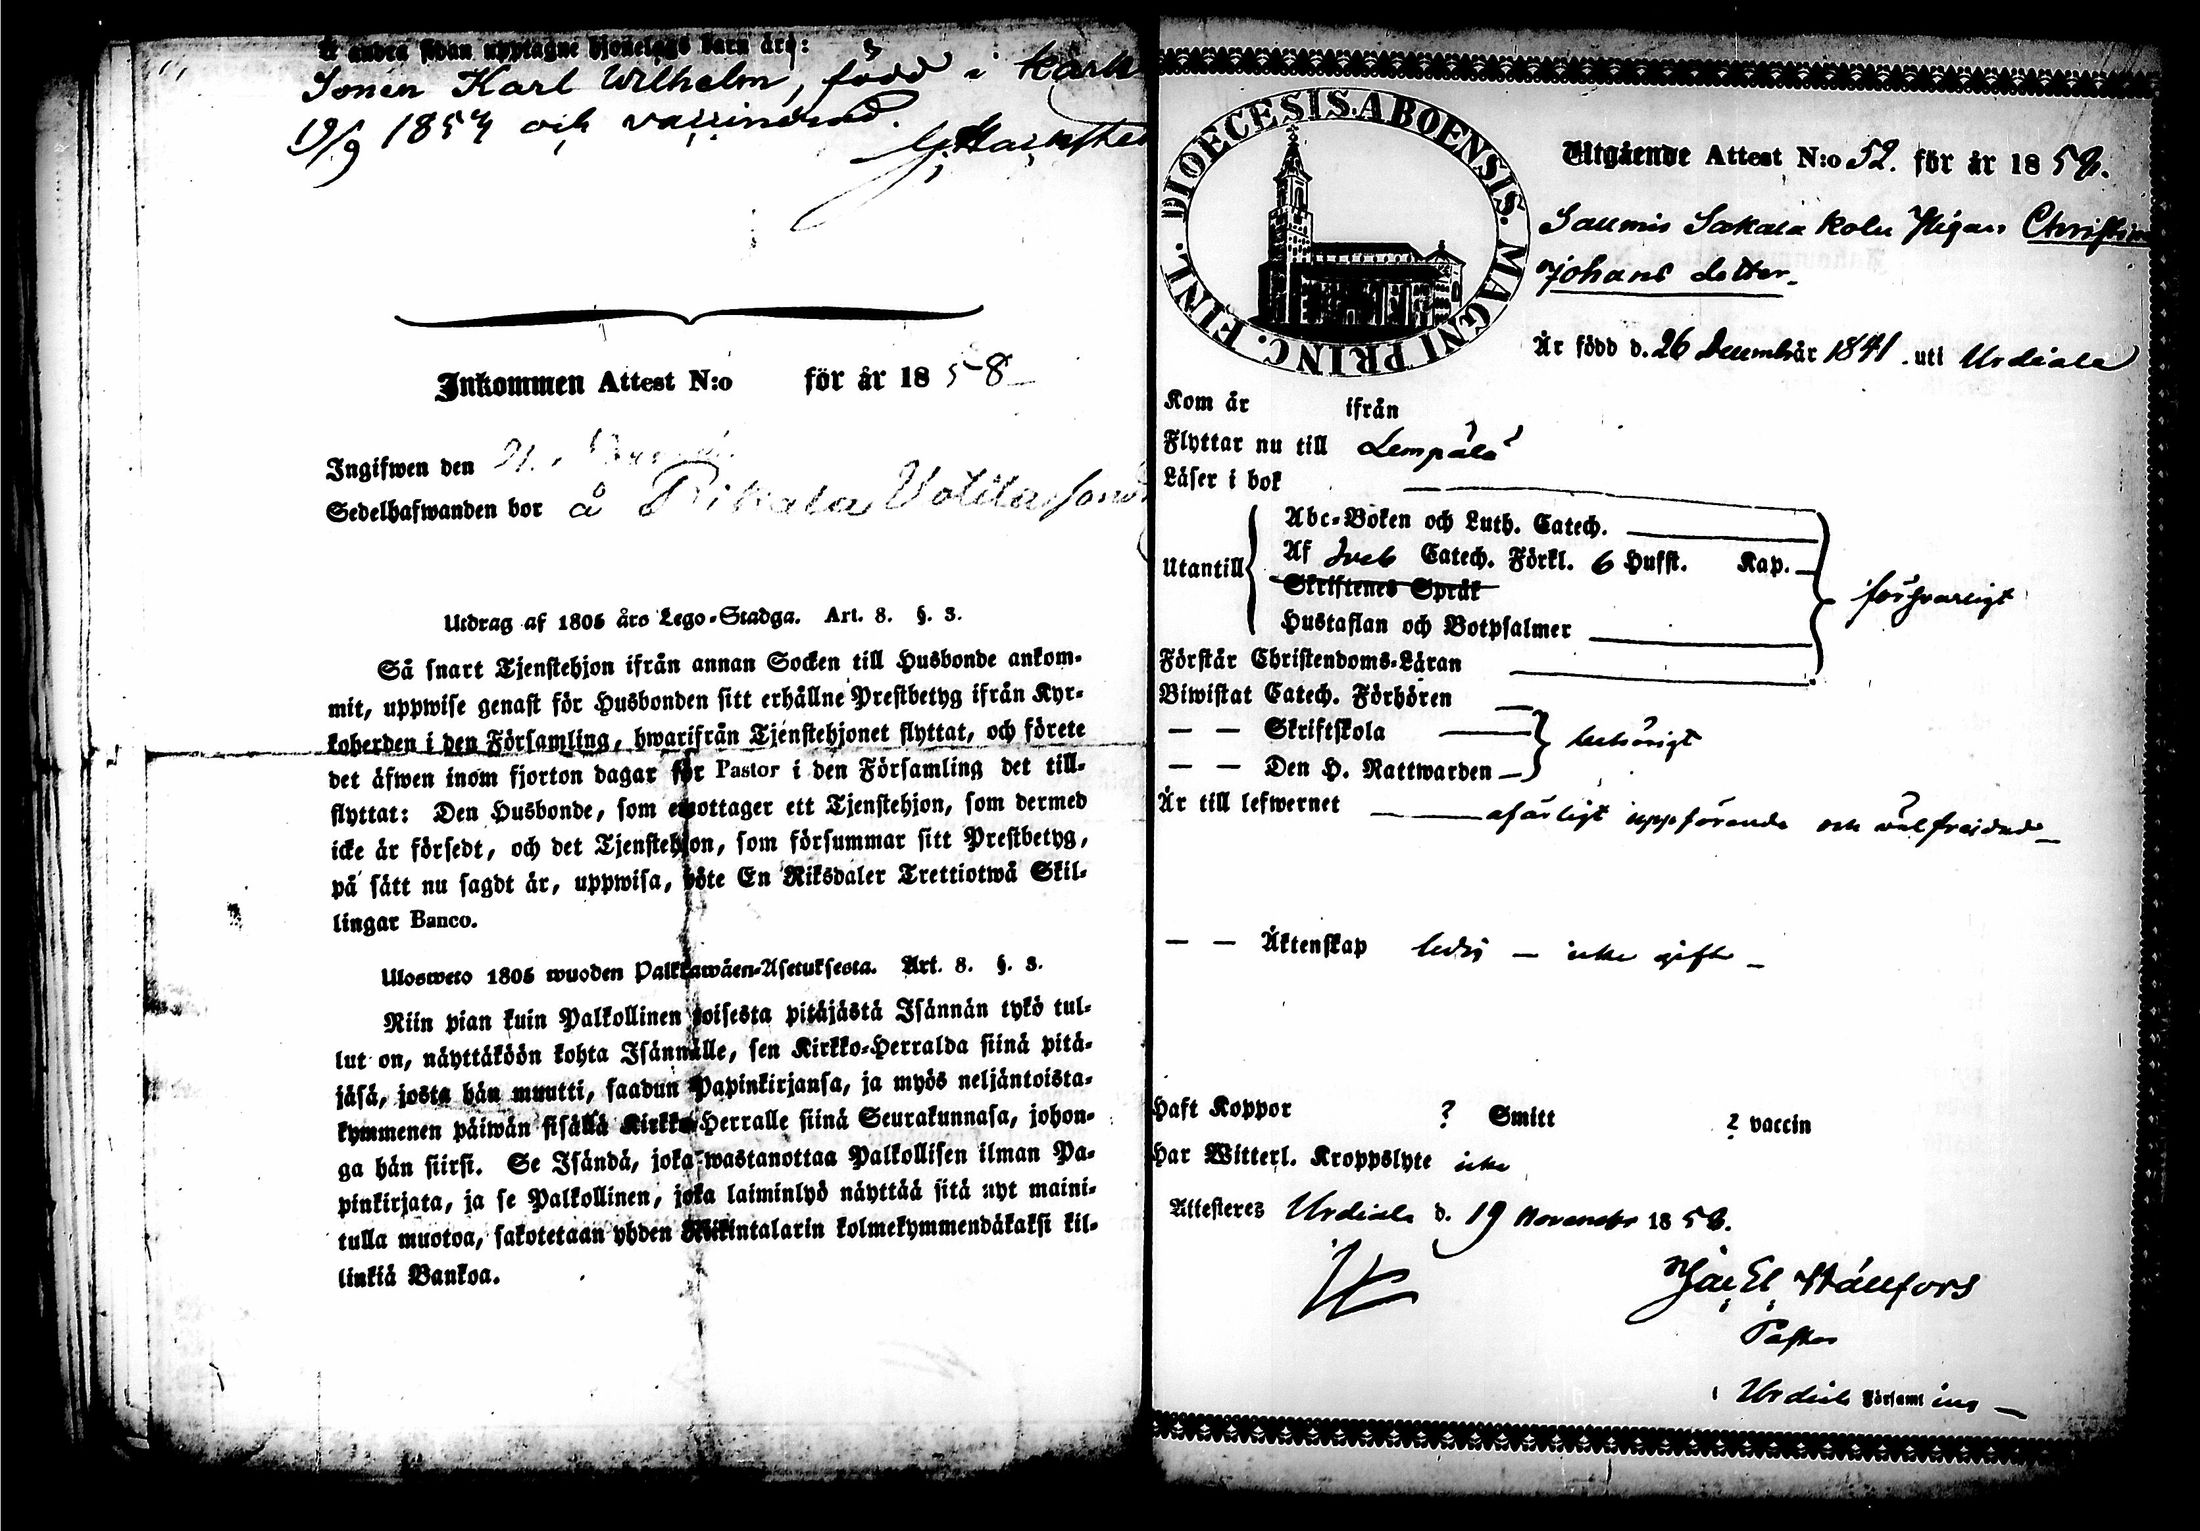 Å andra sidan upptagne hjonelags barn äro:
Sonen Karl Wilhelm, född i Kark
19/9 1854 och vaccinerad.
Inkommen Attest N:o för år 1858
Ingifwen den
Sedelhafwanden bor å
Utdrag af 1805 års Lego-Stadga. Art. 8. §. 3.
Så snart Tjenstehjon ifrån annan Socken till Husbonde ankom-
mit, uppwise genast för Husbonden sitt erhållne Prestbetyg ifrån Kyr-
koherden i den Församling, hwarifrån Tjenstehjonet flyttat, och förete
det äfwen inom fjorton dagar för Pastor i den Församling det till-
flyttat: Den Husbonde, som emottager ett Tjenstehjon, som dermed
icke är försedt, och det Tjenstehjon, som försummar sitt Prestbetyg,
på sätt nu sagdt är, uppwisa, böte En Riksdaler Trettiotwå Skil-
lingar Banco.
Ulosweto 1805 wuoden Palkkawäen-Asetuksesta. Art. 8. §. 3.
Niin pian kuin Palkollinen toisesta pitäjästä Isännän tykö tul-
lut on, näyttäköön kohta Isännälle, sen Kirkko-Herralda siinä pitä-
jäsä, josta hän muutti, saadun Papinkirjansa, ja myös neljäntoista-
kymmenen päiwän sisällä Kirkko-Herralle siinä Seurakunnasa, johon-
ga hän siirsi. Se Isändä, joka wastanottaa Palkollisen ilman Pa-
pinkirjata, ja se Palkollinen, joka laiminlyö näyttää sitä nyt maini-
tulla muotoa, sakotetaan yhden Riikintalarin kolmekymmendäkaksi kil-
linkiä Bankoa.
DIOECESIS. ABOENSIS. MAGNI PRINC. FINL.
Utgående Attest N:o 52. för år 1858.
Christina
Johans dotter
Är född d. 26 December 1841. uti Urdiala
Kom år ifrån
Flyttar nu till Lempälä
Läser i bok
Utantill
Abc-Boken och Luth. Catech.
Af Sveb Catech. Förkl. 6 Hufst. Kap.
Skriftenes Språk
Hustaflan och Botpsalmer
försvarligt
Förstår Christendoms-Läran
Biwistat Catech. Förhören
— — Skriftskola
— — Den H. Nattwarden
behörigt
Är till lefwernet ofärligt uppförande och välfrejdad
— — Äktenskap ledig — icke gift
Haft Koppor ? Smitt ? vaccin
Har Witterl. Kroppslyte icke
Attesteres Urdiala d. 19 November 1858.
Hällfors
Pastor
i Urdiala Församling